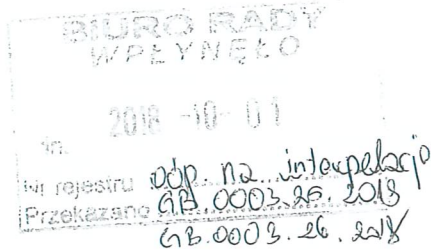 BIURO RADY
WPŁYNĘŁO
2018 -10- 01
Nr rejestru odp. na interpelację
Przekazano GB.0003.25.2018
GB.0003.26.2018